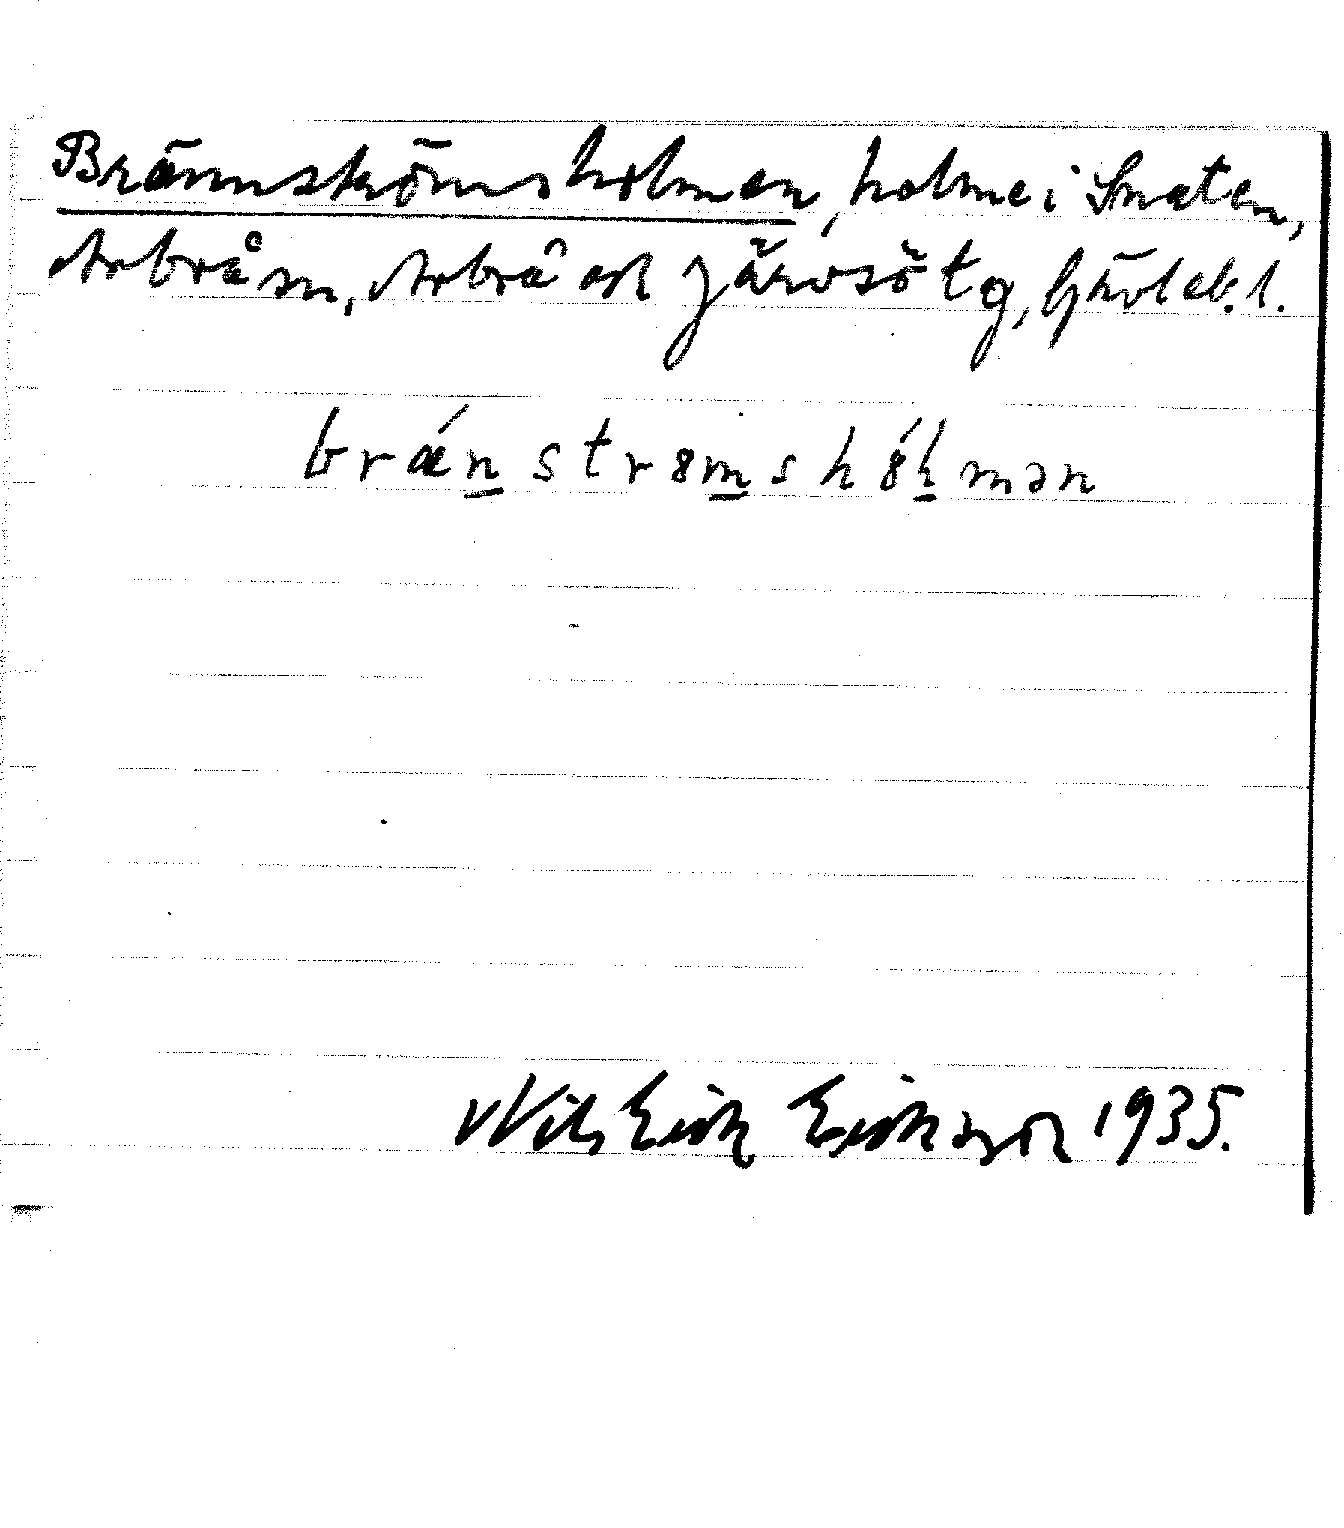 Brännströmsholmen, holme i Snaten,
Arbrå sn, Arbrå och Järvsö tg, Gävleb. l.
brǽn̲strɵm̲shɵ́l̲mən
Nils Erik Eriksson 1935.